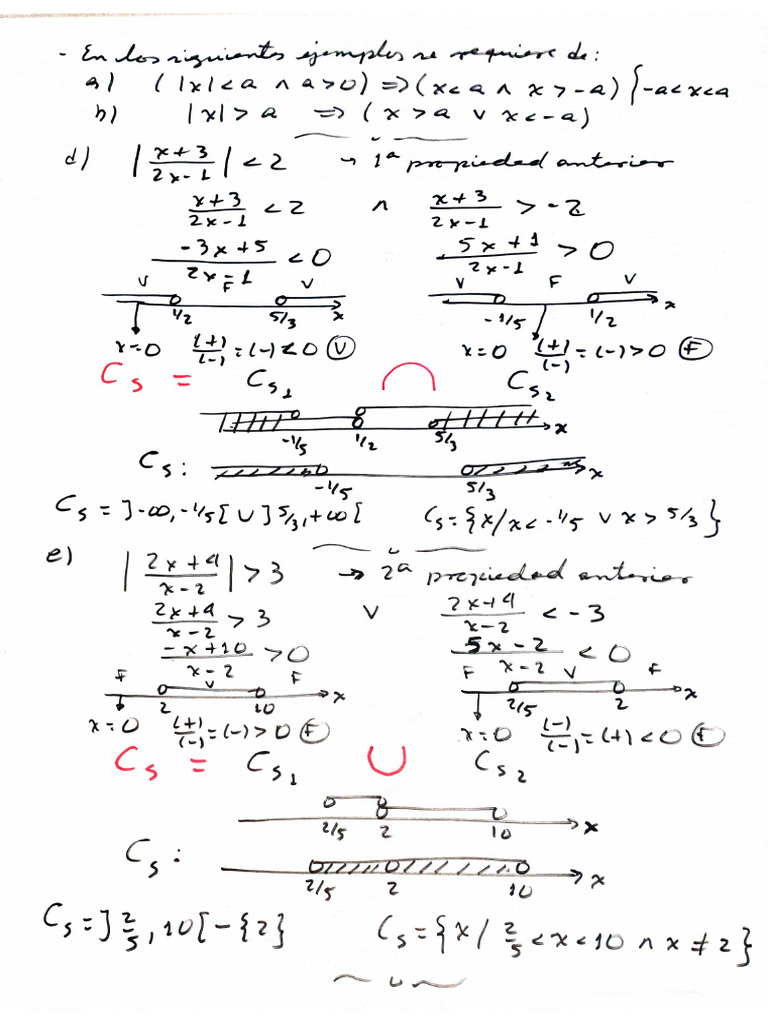 - En los siguientes ejemplos se requiere de:
a) (|x|<a ∧ a>0) ⇒ (x<a ∧ x>-a) {-a<x<a
b) |x|>a ⇒ (x>a ∨ x<-a)
d) |(x+3)/(2x-1)| < 2 → 1ª propiedad anterior
(x+3)/(2x-1) < 2 ∧ (x+3)/(2x-1) > -2
(-3x+5)/(2x-1) < 0 (5x+1)/(2x-1) > 0
V F V V F V
1/2 5/3 x -1/5 1/2 x
x=0 (+)/(-) = (-) < 0 (V) x=0 (+)/(-) = (-) > 0 (F)
Cs = Cs₁ ∩ Cs₂
-1/5 1/2 5/3 x
Cs: -1/5 5/3 x
Cs = ]-∞, -1/5[ ∪ ]5/3, +∞[ Cs = {x/x < -1/5 ∨ x > 5/3}
e) |(2x+4)/(x-2)| > 3 → 2ª propiedad anterior
(2x+4)/(x-2) > 3 ∨ (2x+4)/(x-2) < -3
(-x+10)/(x-2) > 0 (5x-2)/(x-2) < 0
F V F F V F
2 10 x 2/5 2 x
x=0 (+)/(-) = (-) > 0 (F) x=0 (-)/(-) = (+) < 0 (F)
Cs = Cs₁ ∪ Cs₂
2/5 2 10 x
Cs: 2/5 2 10 x
Cs = ]2/5, 10[ - {2} Cs = {x / 2/5 < x < 10 ∧ x ≠ 2}